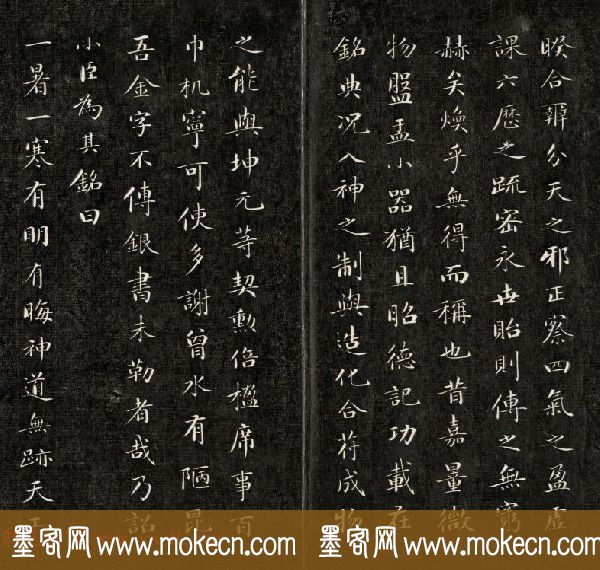 睽合辨分天之邪正察四氣之盈虛
課六歷之疏密永世貽則傳之無窮
赫矣煥乎無得而稱也昔嘉量微
物盤盂小器猶且昭德記功載在
銘典況入神之制與造化合符成物
之能與坤元等契勳倍楹席事百
巾机寧可使多謝曾水有陋昆
吾金字不傳銀書未勒者哉乃詔
小臣為其銘曰
一暑一寒有明有晦神道無跡天
墨客网 www.mokecn.com 墨客网 www.mokecn.com